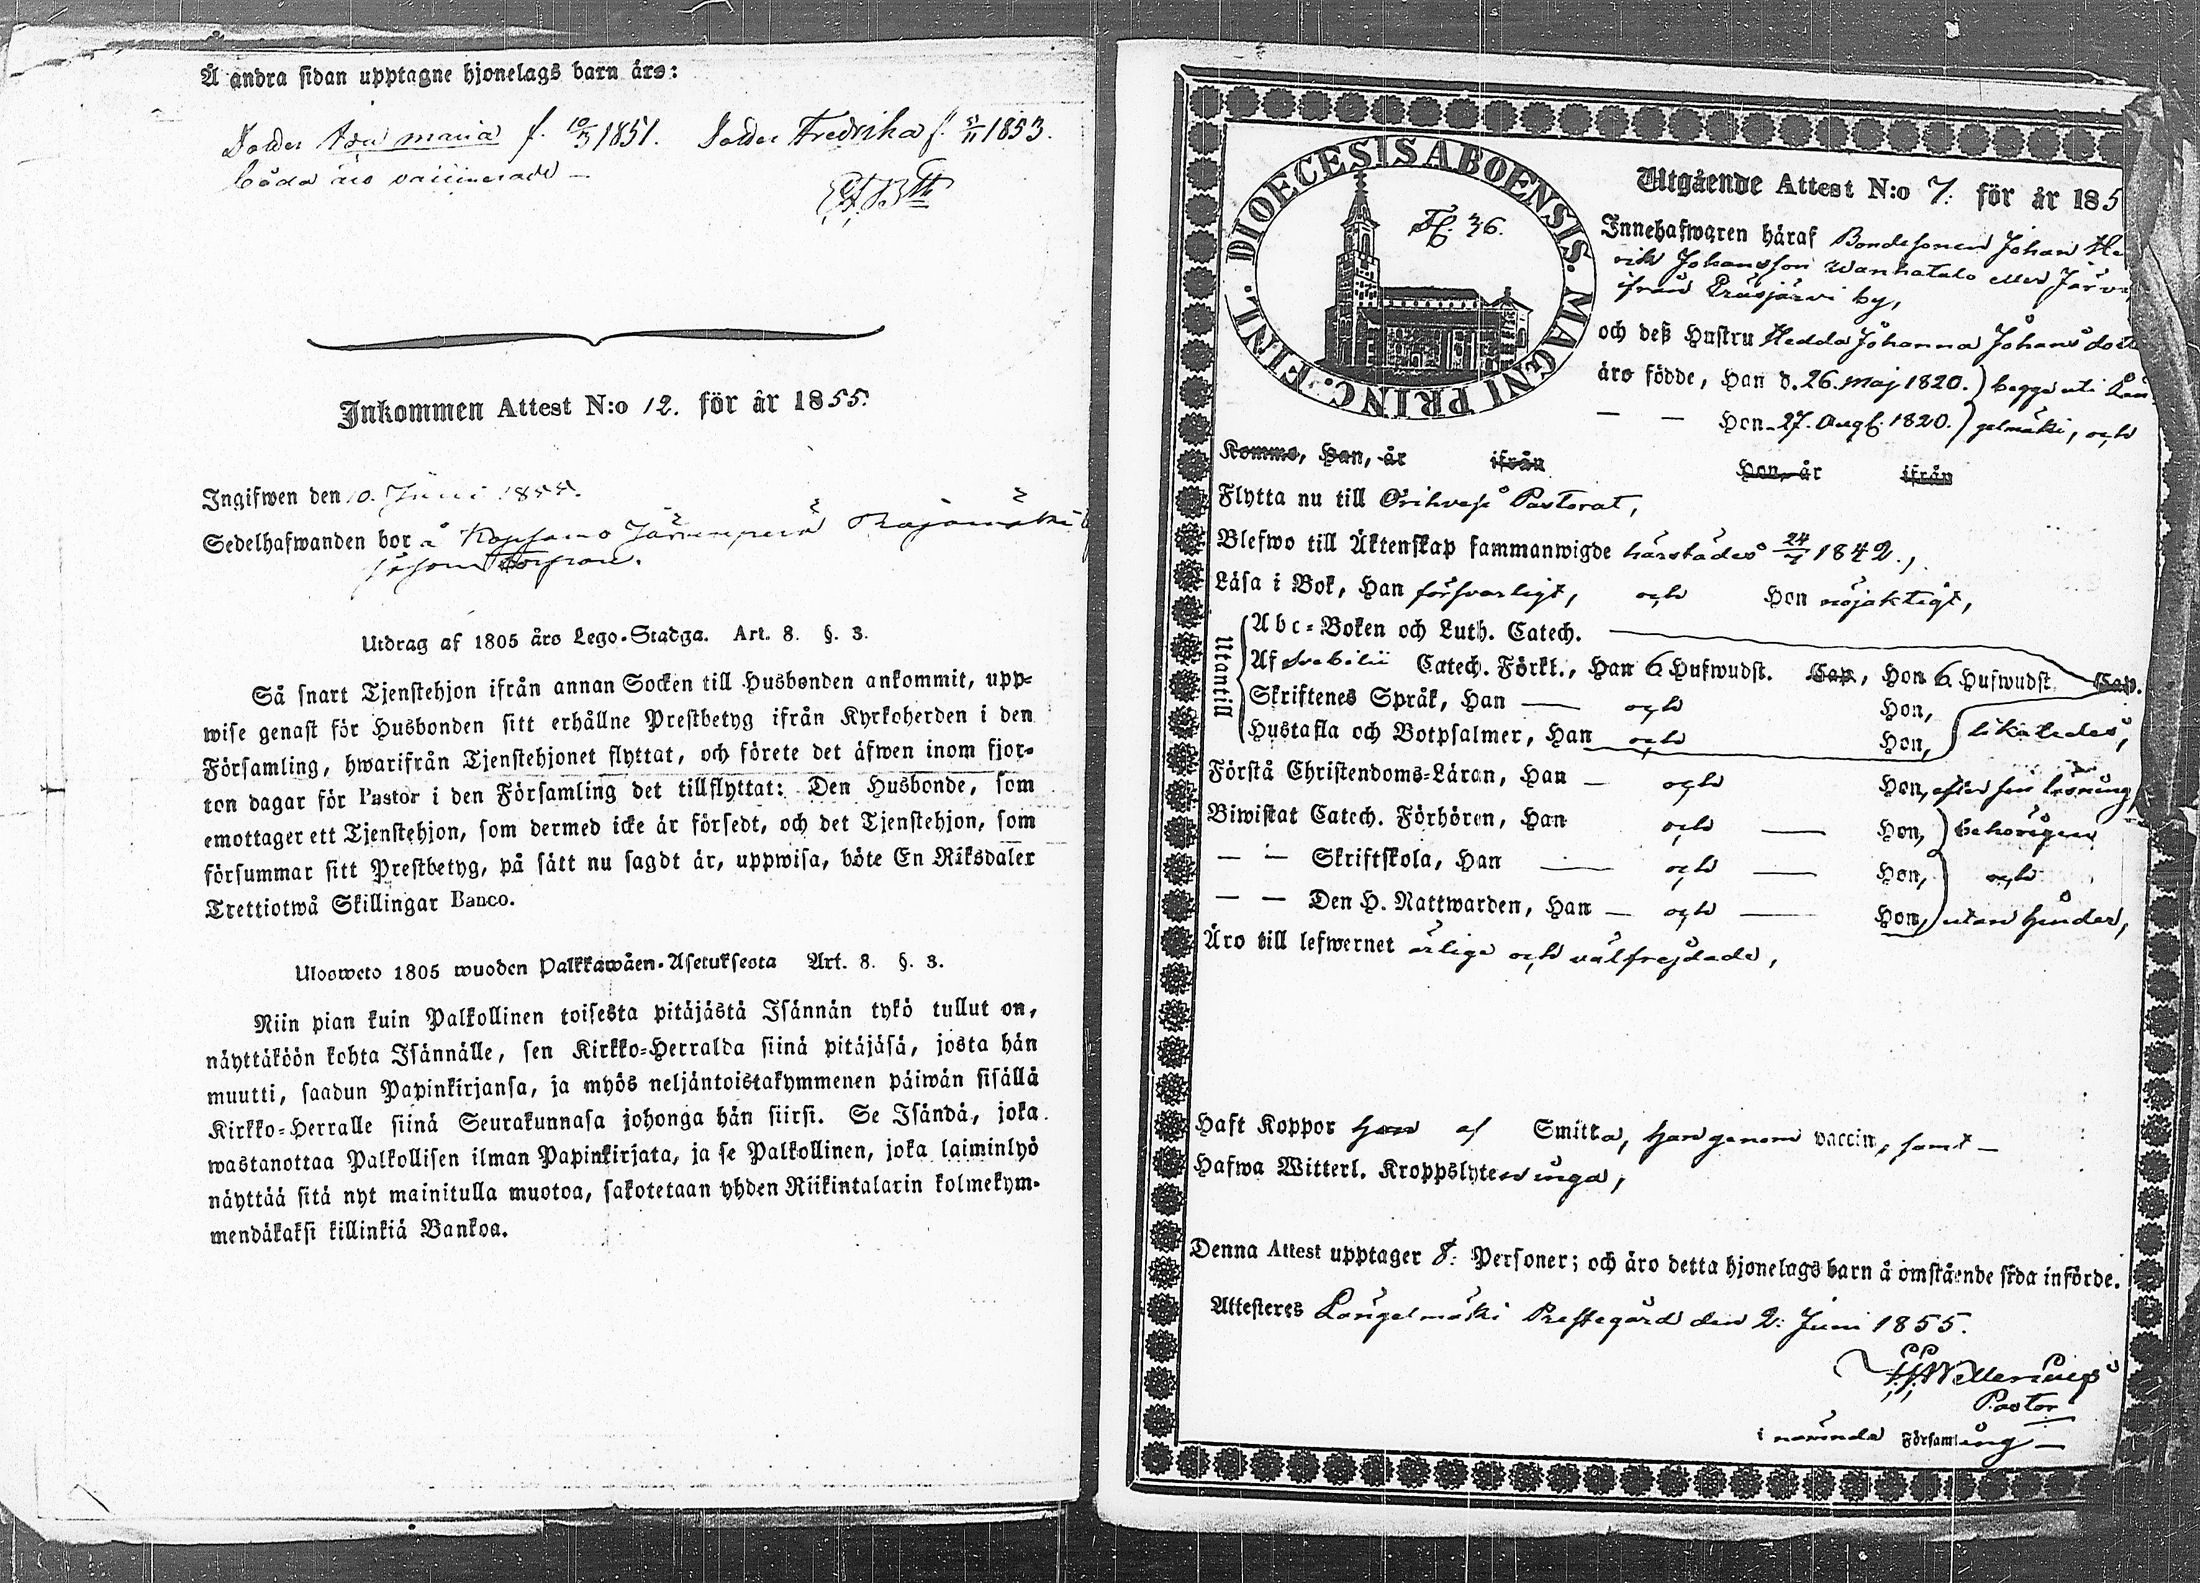 Å andra sidan upptagne hjonelags barn äro:
Dotter Eva Maria f. 10/3 1851. Dotter Fredrika f. 1853.
båda äro vaccinerade —
Inkommen Attest N:o 12. för år 1855.
Ingifwen den 10. Juni 1855.
Sedelhafwanden bor å
såsom Torpare.
Utdrag af 1805 års Lego-Stadga. Art. 8. §. 3.
Så snart Tjenstehjon ifrån annan Socken till Husbonden ankommit, upp-
wise genast för Husbonden sitt erhållne Prestbetyg ifrån Kyrkoherden i den
Församling, hwarifrån Tjenstehjonet flyttat, och förete det äfwen inom fjor-
ton dagar för Pastor i den Församling det tillflyttat: Den Husbonde, som
emottager ett Tjenstehjon, som dermed icke är försedt, och det Tjenstehjon, som
försummar sitt Prestbetyg, på sätt nu sagdt är, uppwisa, böte En Riksdaler
Trettiotwå Skillingar Banco.
Ulosweto 1805 wuoden Palkkawäen-Asetuksesta Art. 8. §. 3.
Niin pian kuin Palkollinen toisesta pitäjästä Isännän tykö tullut on,
näyttäköön kohta Isännälle, sen Kirkko-Herralda siinä pitäjäsä, josta hän
muutti, saadun Papinkirjansa, ja myös neljäntoistakymmenen päiwän sisällä
Kirkko-Herralle siinä Seurakunnasa johonga hän siirsi. Se Isändä, joka
wastanottaa Palkollisen ilman Papinkirjata, ja se Palkollinen, joka laiminlyö
näyttää sitä nyt mainitulla muotoa, sakotetaan yhden Riikintalarin kolmekym-
mendäkaksi killinkiä Bankoa.
DIOECESIS ABOENSIS. MAGNI PRINC. FINL.
36.
Utgående Attest N:o 7. för år 185
Innehafwaren häraf Bondesonen Johan He
rik Johansson Wanhatalo eller Järv
ifrån Präsjärvi by,
och deß Hustru Hedda Johanna Johansdott
äro födde, Han d. 26. Maj 1820. ) begge uti Län
— — Hon 27. Aug. 1820. ) gelmäki, och
Komme, Han, år ifrån Hon, år ifrån
Flytta nu till Orihvesi Pastorat,
Blefwo till Äktenskap sammanwigde härstädes 1842.,
Läsa i Bok, Han försvarligt, och Hon nöjaktigt,
Utantill
Abc-Boken och Luth. Catech.
Af Svebilii Catech. Förkl., Han 6 Hufwudst. Cap., Hon 6 Hufwudst. Cap.
Skriftenes Språk, Han — och Hon,
Hustafla och Botpsalmer, Han och Hon, likaledes,
Förstå Christendoms-Läran, Han — och Hon, efter sin läsning,
Biwistat Catech. Förhören, Han och — Hon, behörigen
— — Skriftskola, Han — och — Hon, och
— — Den H. Nattwarden, Han — och — Hon, utan hinder,
Äro till lefwernet ärlige och välfrejdade,
Haft Koppor han af Smitta, hon genom vaccin, samt —
Hafwa Witterl. Kroppslyten inga,
Denna Attest upptager 8. Personer; och äro detta hjonelags barn å omstående sida införde.
Attesteres Längelmäki Prestegård den 2. Juni 1855.
Pastor
i nämnda Församling —